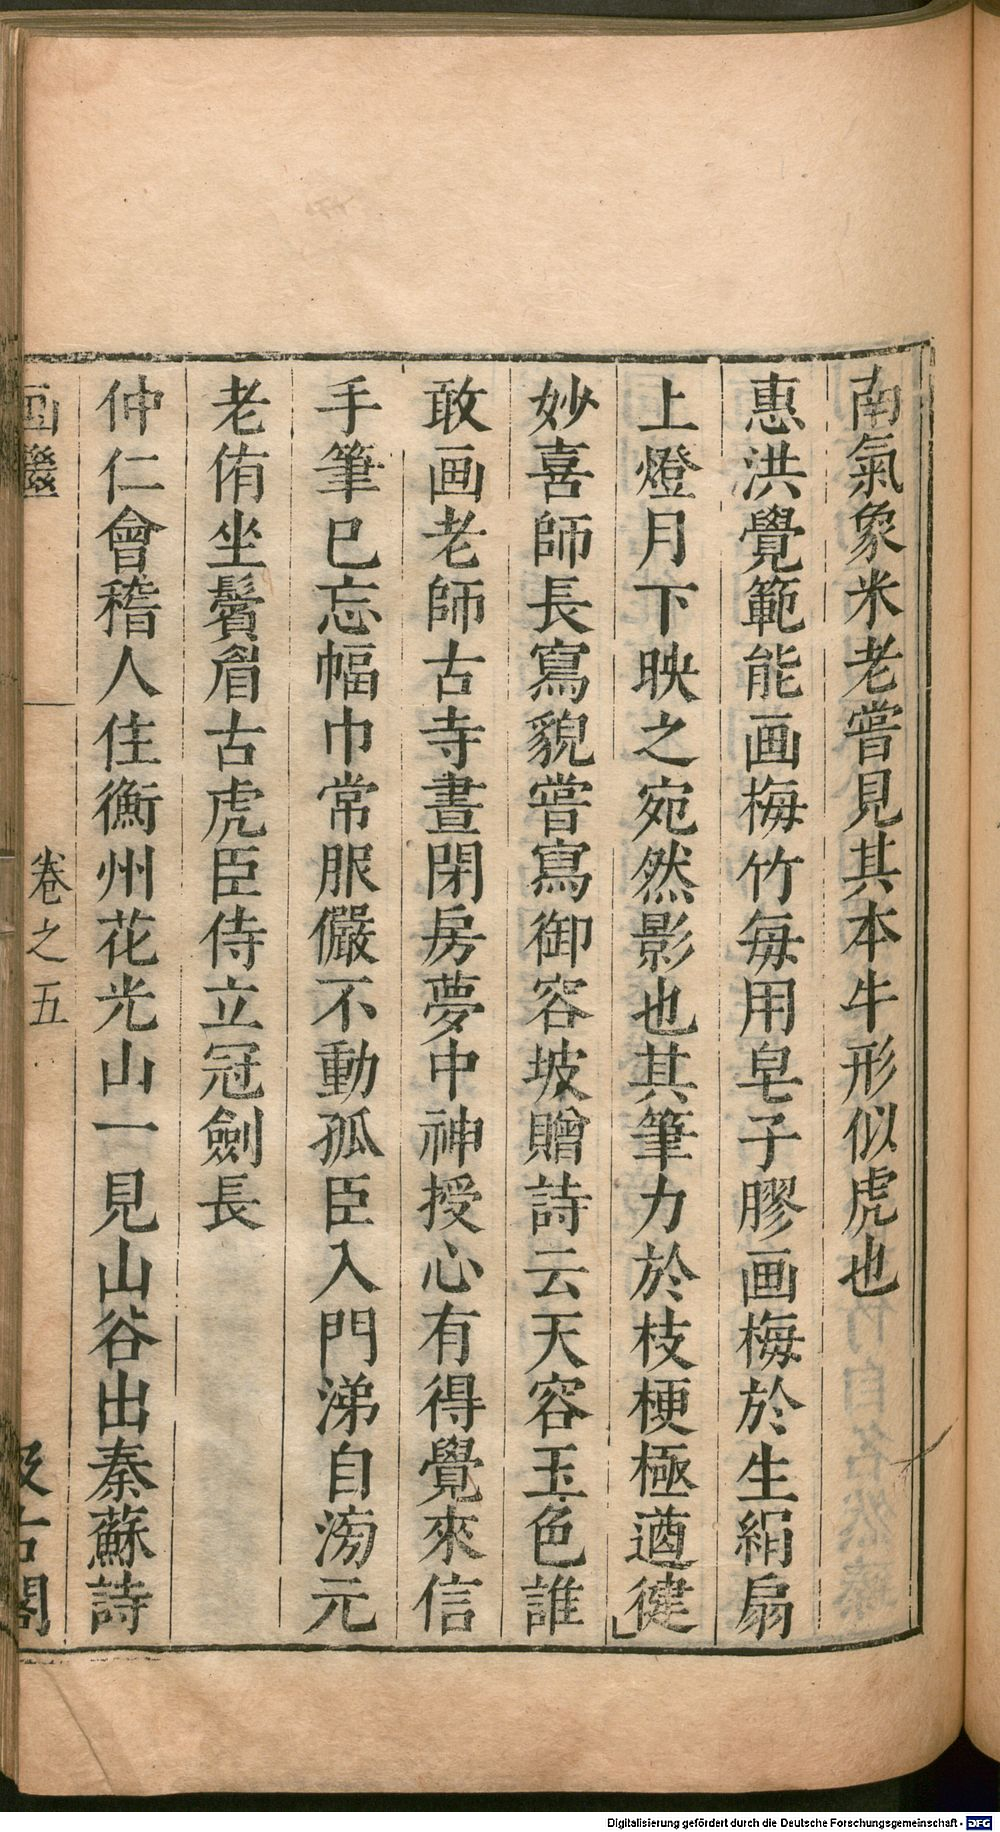 南氣象米老嘗見其本牛形似虎也
惠洪覺範能画梅竹每用皂子膠画梅於生絹扇
上燈月下映之宛然影也其筆力於枝梗極遒健
妙喜師長寫貌嘗寫御容坡贈詩云天容玉色誰
敢画老師古寺晝閉房夢中神授心有得覺來信
手筆已忘幅巾常服儼不動孤臣入門涕自滂元
老侑坐鬢眉古虎臣侍立冠劍長
仲仁會稽人住衡州花光山一見山谷出秦蘇詩
画繼
卷之五
汲古閣
Digitalisierung gefördert durch die Deutsche Forschungsgemeinschaft - DFG